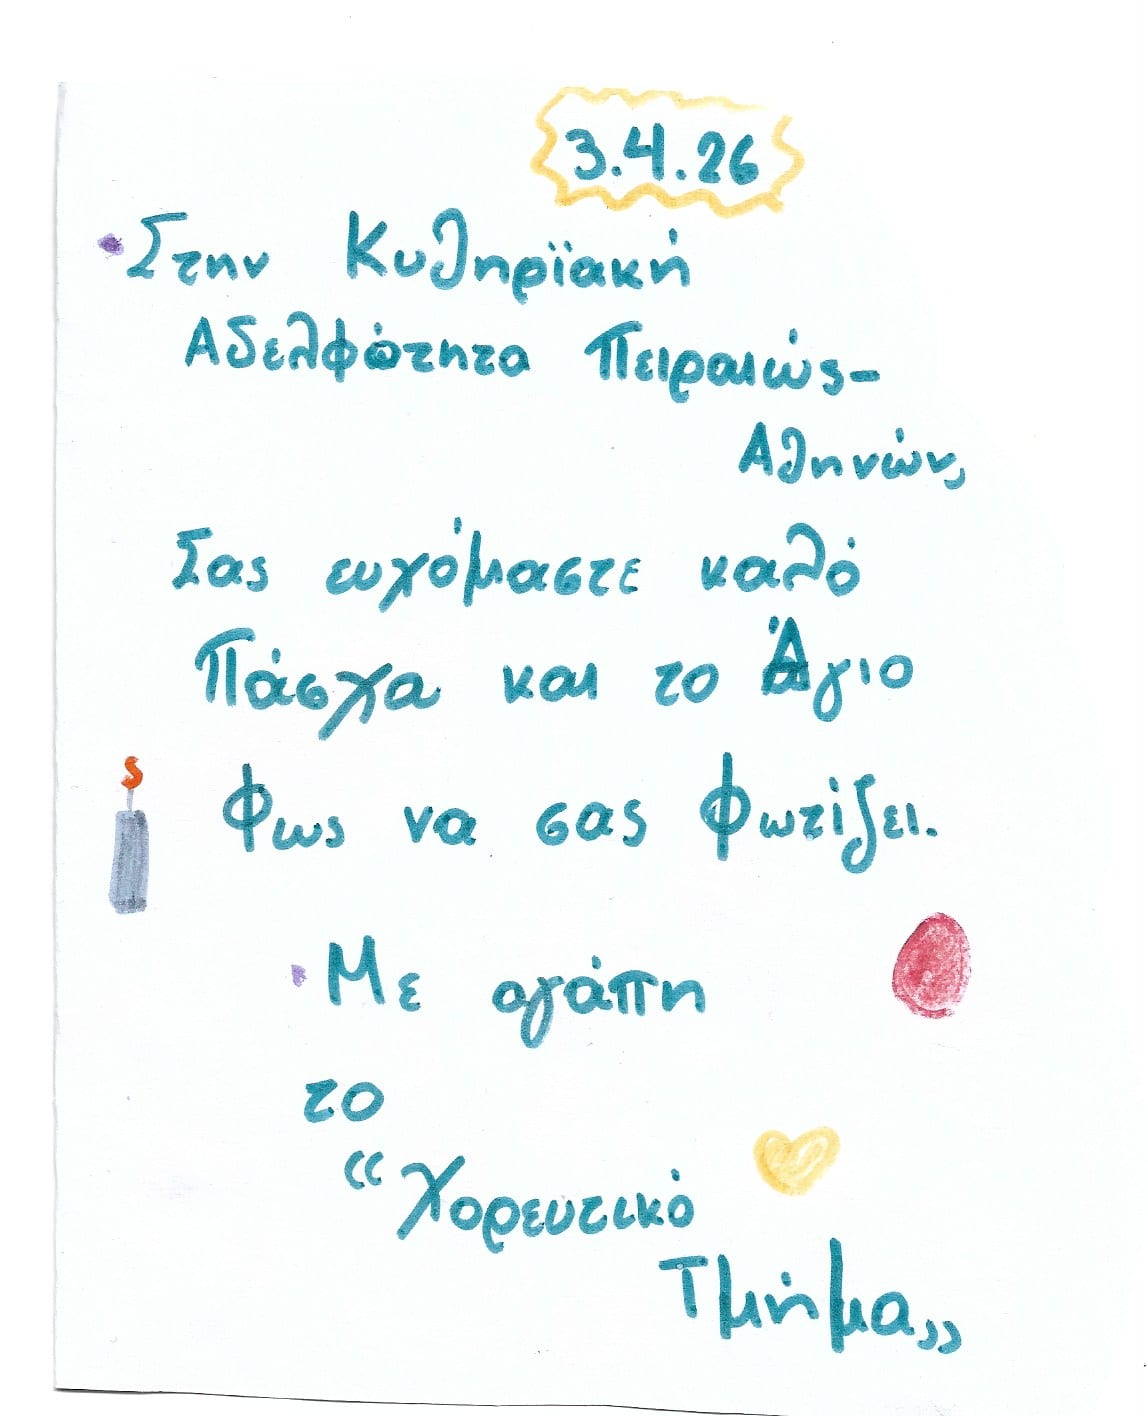 3.4.26
Στην Κυθηρϊακή
Αδελφότητα Πειραιώς-
Αθηνών,
Σας ευχόμαστε καλό
Πάσχα και το Άγιο
Φως να σας φωτίζει.
Με αγάπη
το
“Χορευτικό
Τμήμα„